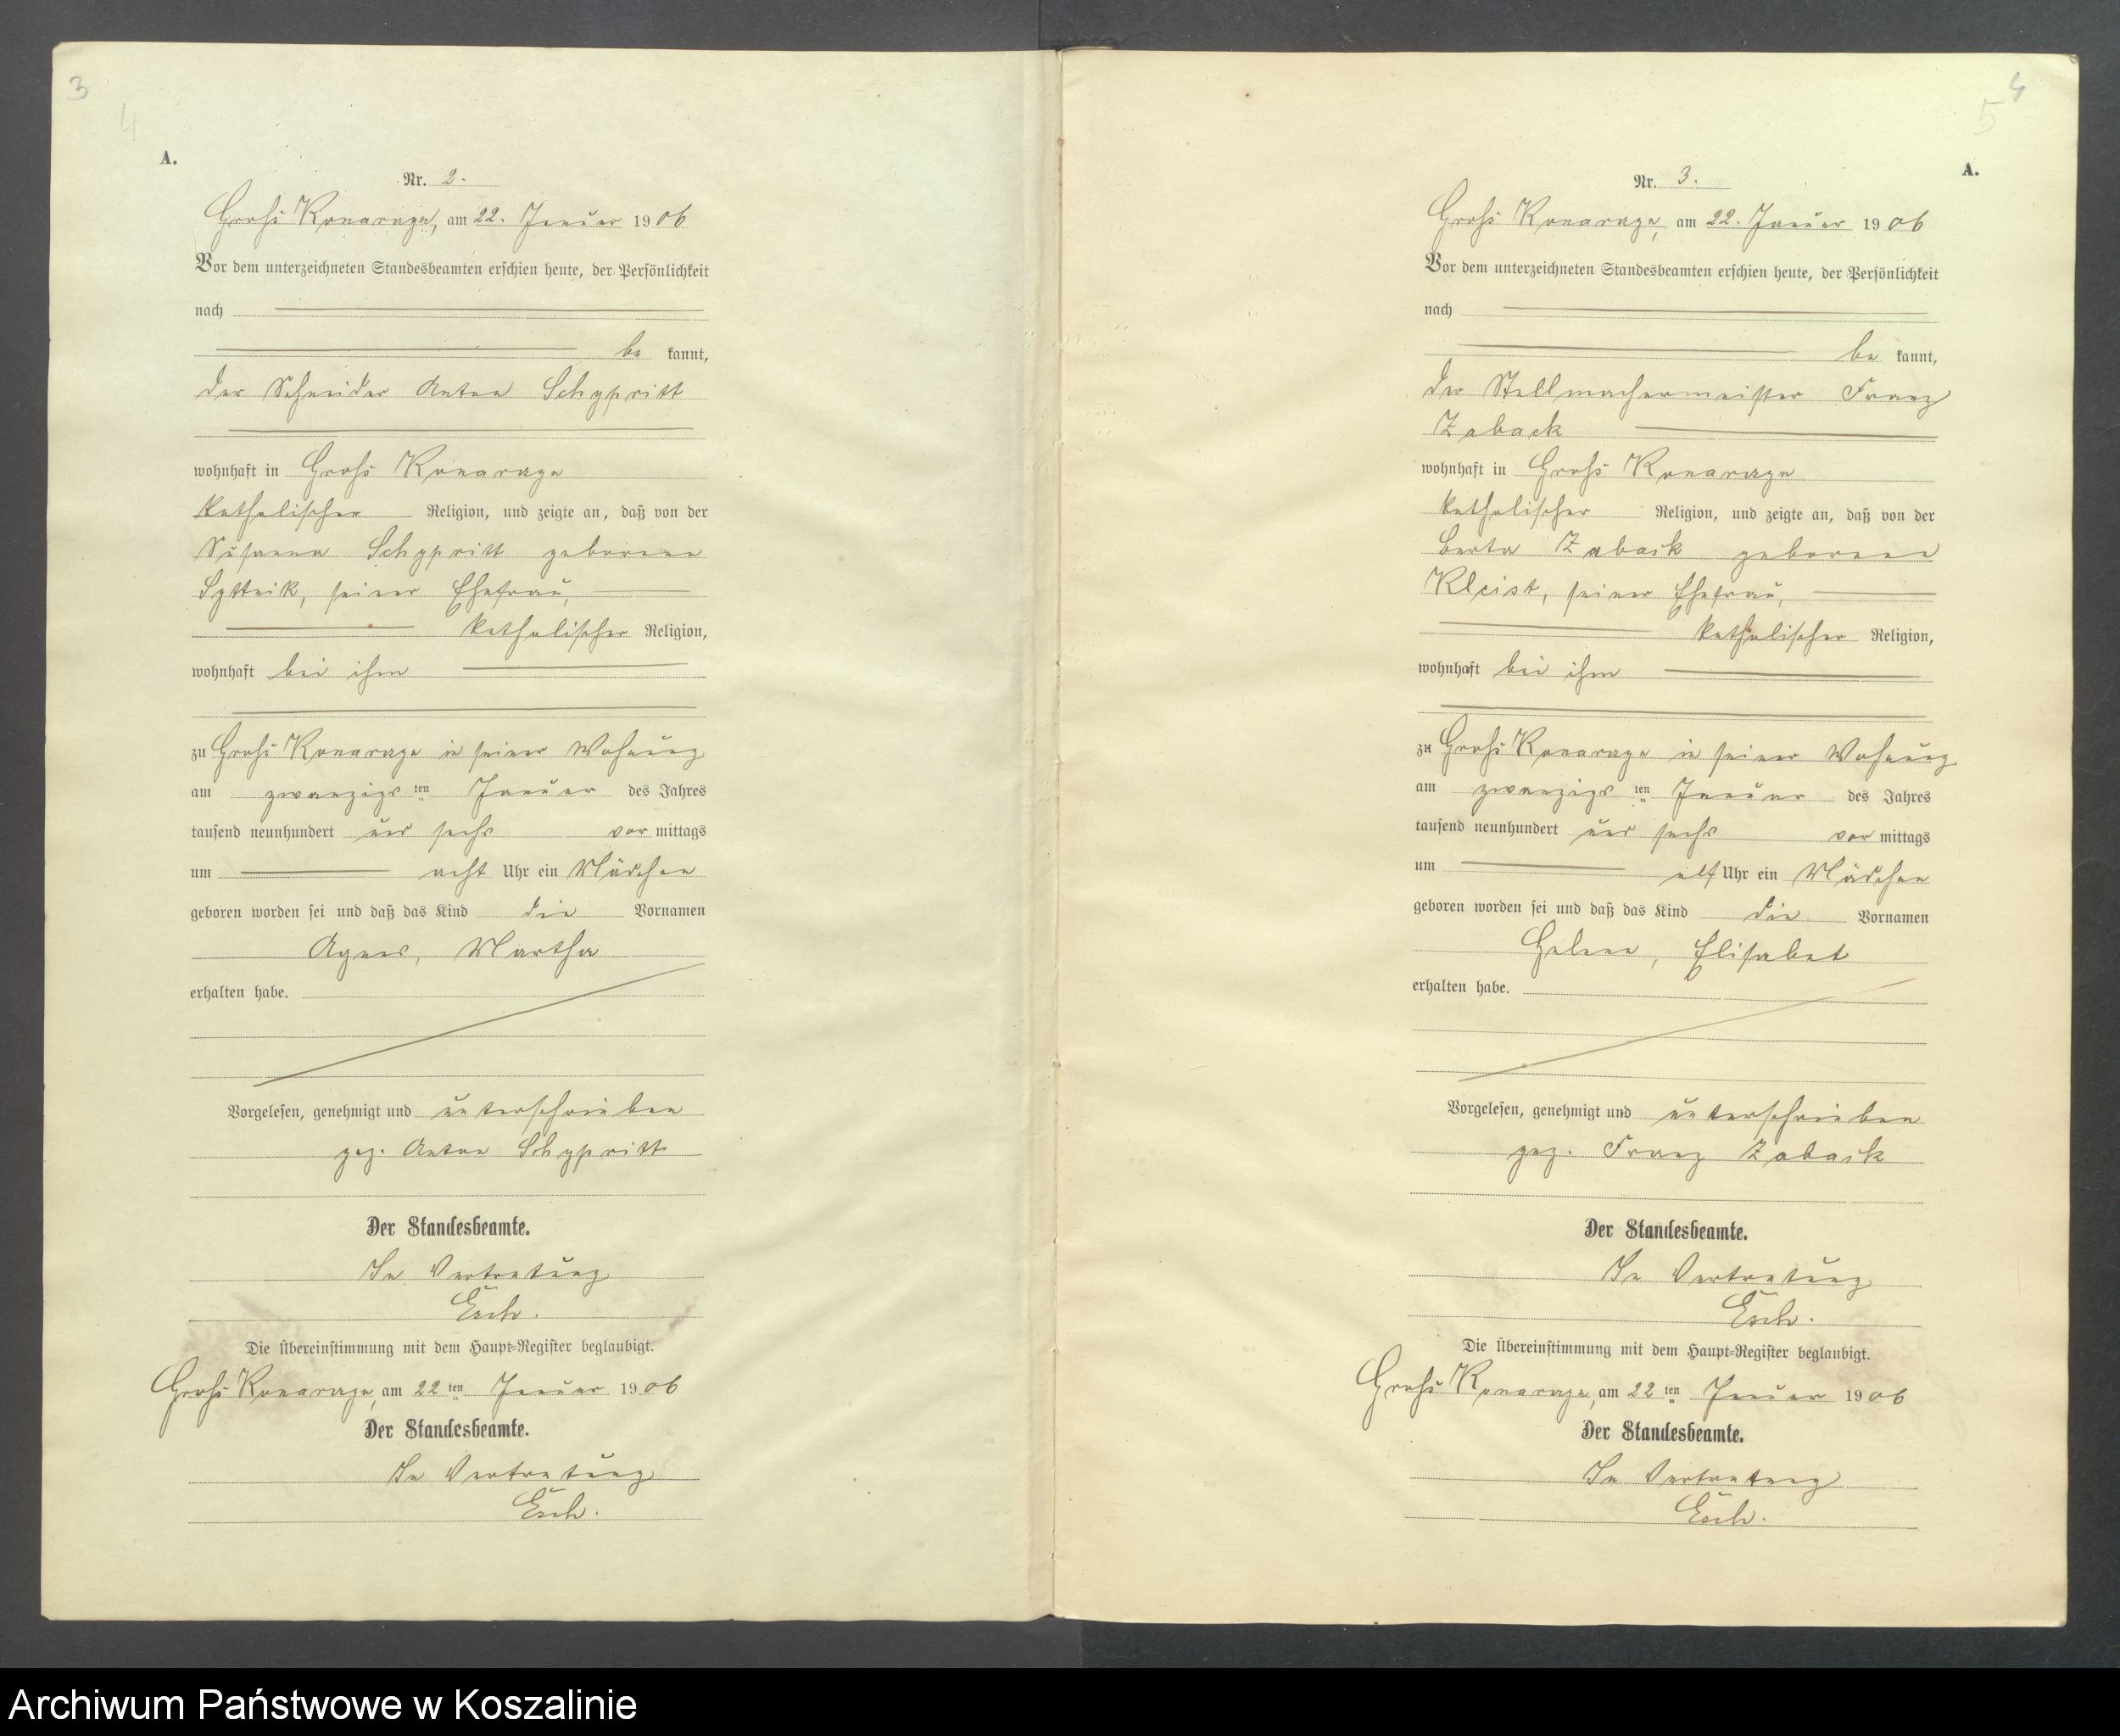 3
4
A.
Nr. 2.
Groß Konarzyn, am 22. Januar 1906
Vor dem unterzeichneten Standesbeamten erschien heute, der Persönlichkeit
nach
be kannt,
der Schneider Anton Schypritt
wohnhaft in Groß Konarzyn
katholischer Religion, und zeigte an, daß von der
Susanna Schypritt geborene
seiner Ehefrau,
katholischer Religion,
wohnhaft bei ihm
zu Groß Konarzyn in seiner Wohnung
am zwanzigsten Januar des Jahres
tausend neunhundert und sechs vor mittags
um acht Uhr ein Mädchen
geboren worden sei und daß das Kind die Vornamen
Agnes, Martha
erhalten habe.
Vorgelesen, genehmigt und unterschrieben
gez. Anton Schypritt
Der Standesbeamte.
In Vertretung
Esch.
Die Übereinstimmung mit dem Haupt-Register beglaubigt.
Groß Konarzyn, am 22ten Januar 1906
Der Standesbeamte.
In Vertretung
Esch.
4
5
A.
Nr. 3.
Groß Konarzyn, am 22. Januar 1906
Vor dem unterzeichneten Standesbeamten erschien heute, der Persönlichkeit
nach
be kannt,
der Stellmachermeister Franz
Zaback
wohnhaft in Groß Konarzyn
katholischer Religion, und zeigte an, daß von der
Berta Zaback geborene
Kleist, seiner Ehefrau,
katholischer Religion,
wohnhaft bei ihm
zu Groß Konarzyn in seiner Wohnung
am zwanzigsten Januar des Jahres
tausend neunhundert und sechs vor mittags
um elf Uhr ein Mädchen
geboren worden sei und daß das Kind die Vornamen
Helene, Elisabet
erhalten habe.
Vorgelesen, genehmigt und unterschrieben
gez. Franz Zaback
Der Standesbeamte.
In Vertretung
Esch.
Die Übereinstimmung mit dem Haupt-Register beglaubigt.
Groß Konarzyn, am 22ten Januar 1906
Der Standesbeamte.
In Vertretung
Esch.
Archiwum Państwowe w Koszalinie